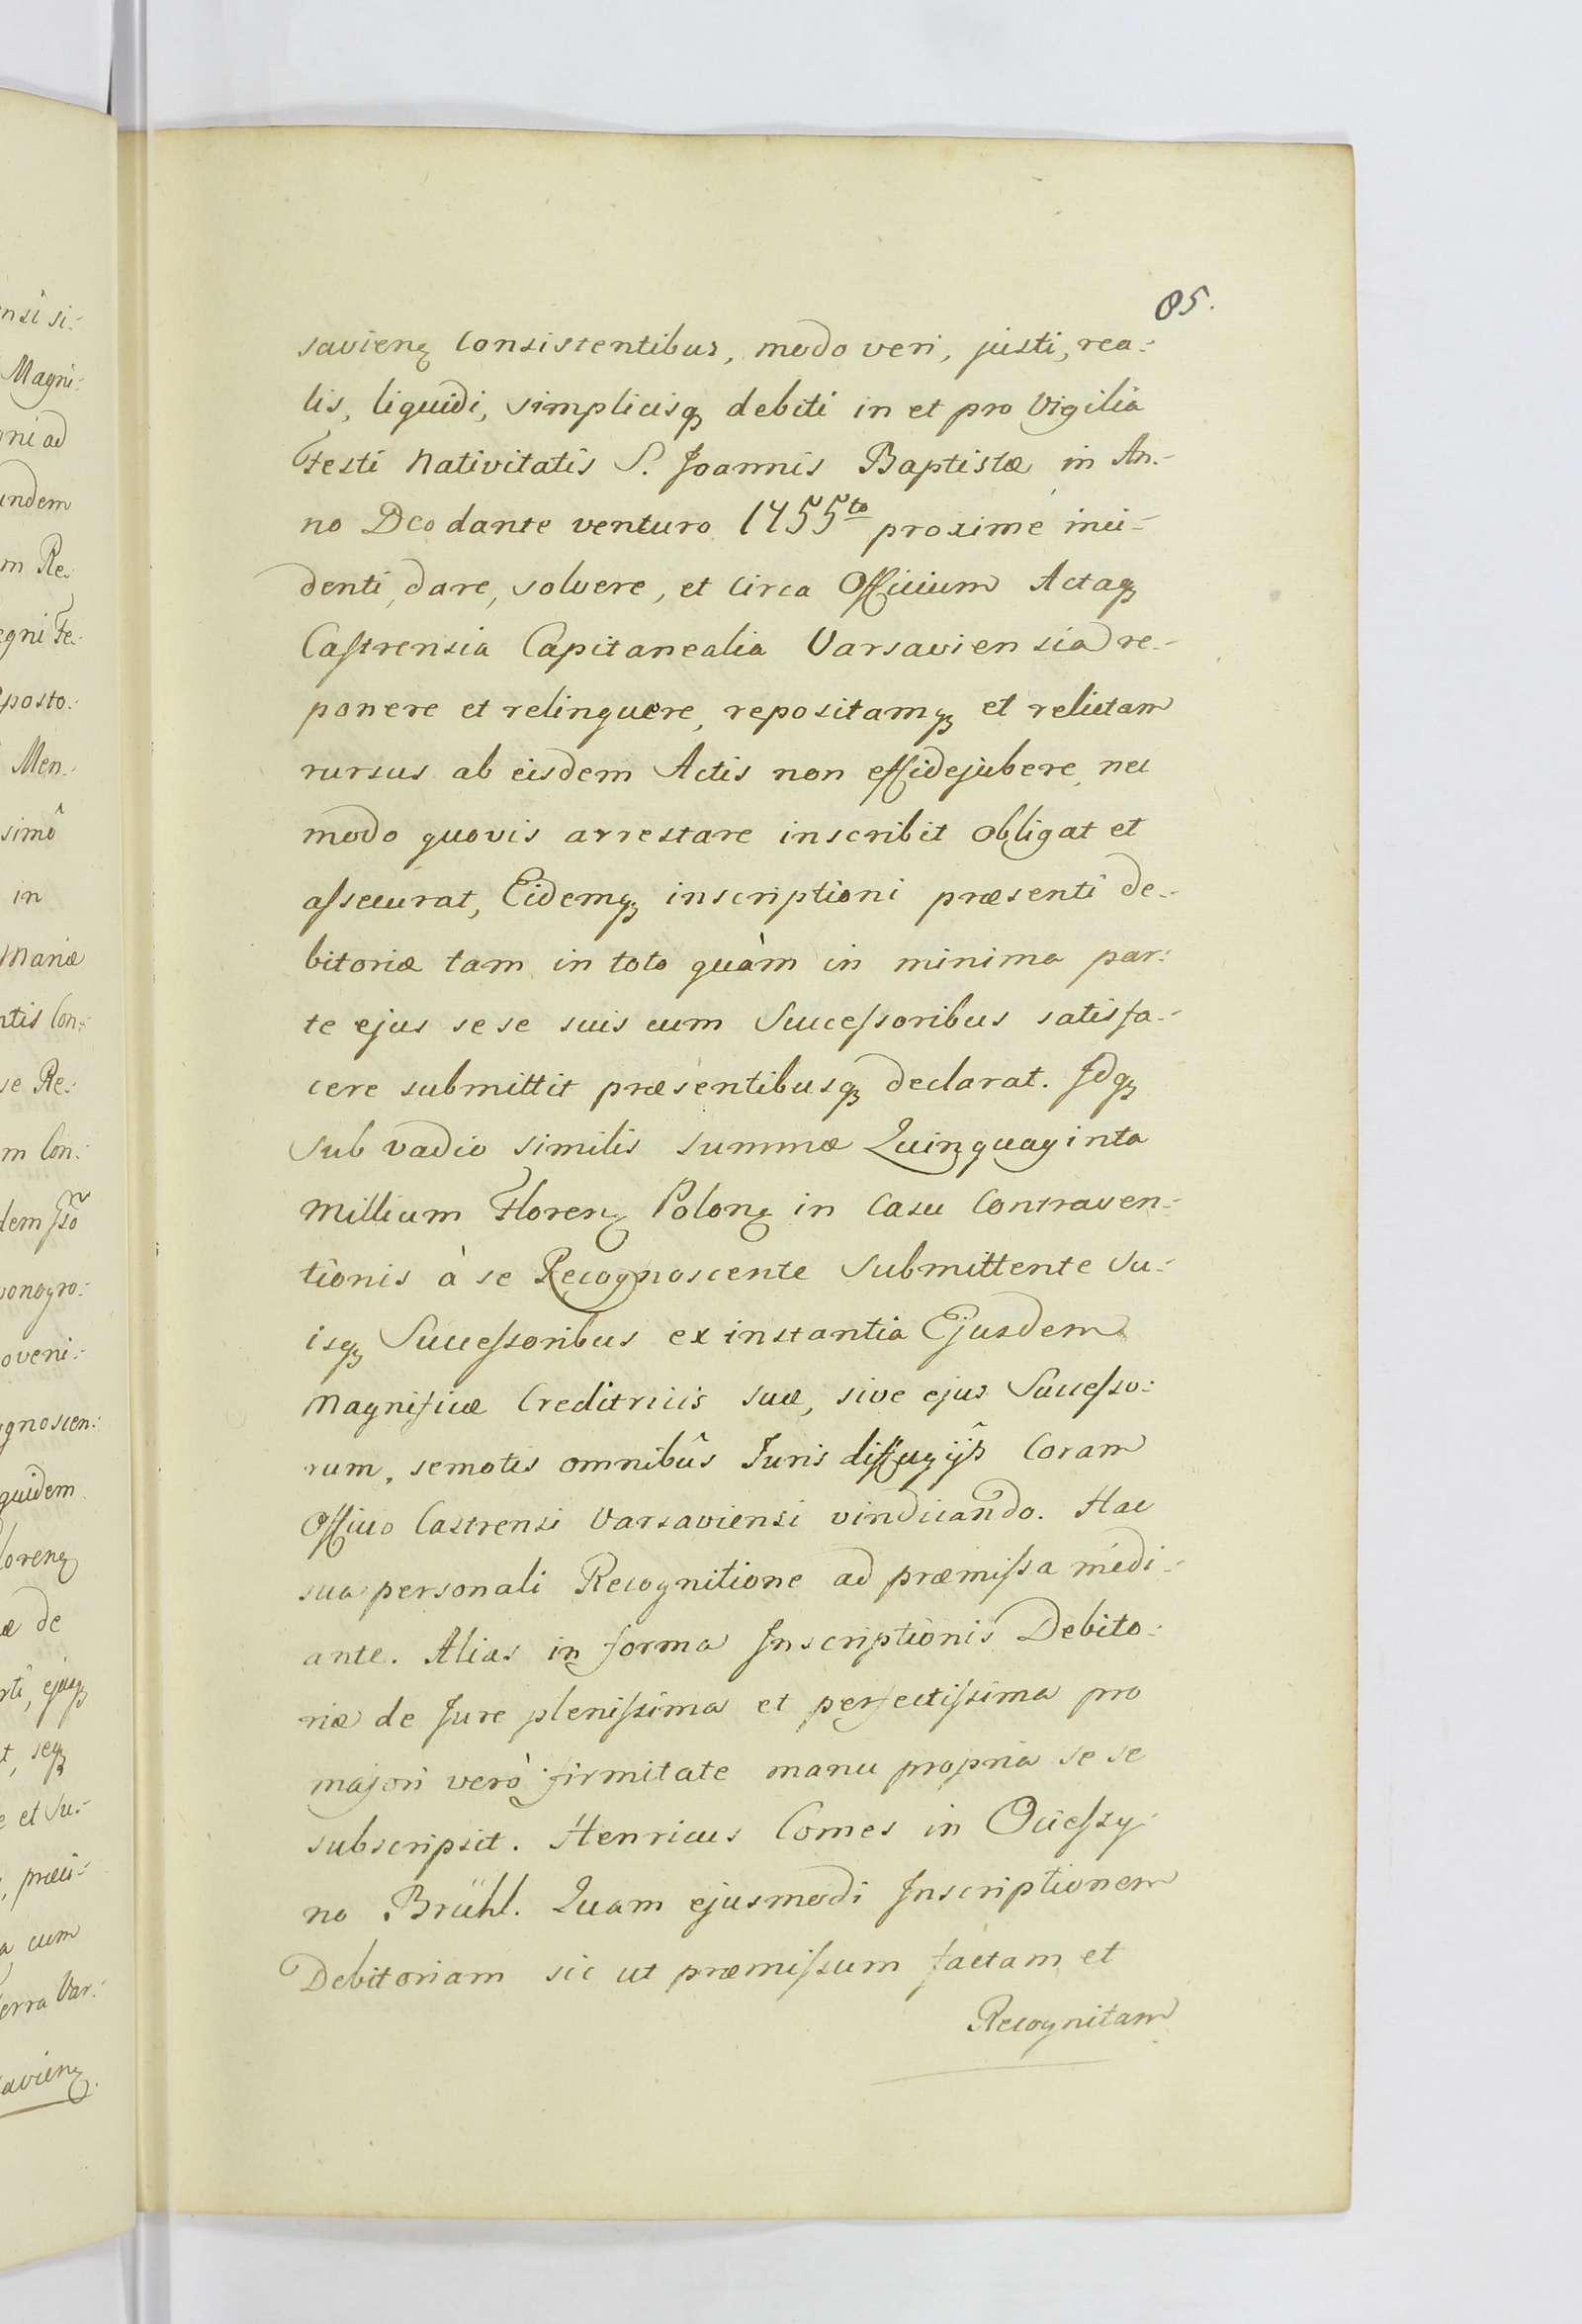 85.
savienꝫ Consistentibus, modo veri, justi, rea-
lis, liquidi, simplicisqꝫ debiti in et pro Vigilia
Festi Nativitatis S. Joannis Baptistæ in An-
no Deo dante venturo 1755to proximè inci-
denti, dare, solvere, et circa Officium Actaqꝫ
Castrensia Capitanealia Varsaviensia re-
ponere et relinquere, repositamqꝫ et relictam
rursus ab eisdem Actis non effidejubere, nec
modo quovis arrestare inscribit obligat et
assecurat, Eidemqꝫ inscriptioni præsenti de-
bitoriæ tam in toto quàm in minima par-
te ejus se se suis cum Successoribus satisfa-
cere submittit præsentibusqꝫ declarat. Idqꝫ
sub vadio similis summæ Quinquaginta
Millium Florenꝫ Polonꝫ in Casu Contraven-
tionis à se Recognoscente Submittente su-
isqꝫ Successoribus ex instantia Ejusdem
Magnificæ Creditricis suæ, sive ejus Successo-
rum, semotis omnibûs Juris diffugijs Coram
Officio Castrensi Varsaviensi vindicando. Hac
sua personali Recognitione ad præmissa medi-
ante. Alias in forma Inscriptionis Debito-
riæ de Jure plenissima et perfectissima pro
majori verò firmitate manu propria se se
subscripsit. Henricus Comes in Ociessy-
no Brühl. Quam ejusmodi Inscriptionem
Debitoriam sic ut præmissum factam et
Recognitam